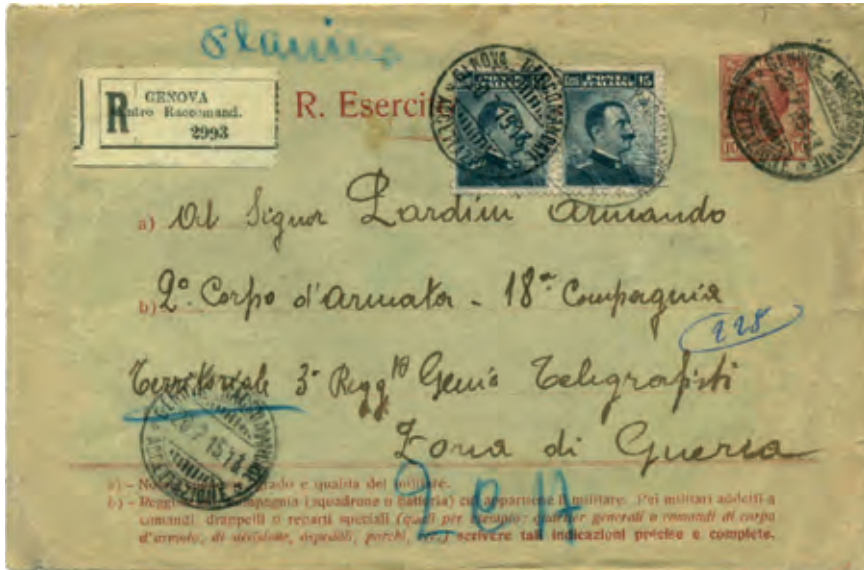 R GENOVA
Centro Raccomand.
2993
R. Eserci
a) Al Signor Lardini Armando
b) 2º Corpo d'Armata - 18ª Compagnia
228
Territoriale 3º Regg.to Genio Telegrafisti
Zona di Guerra
2017
a) - grado e qualità del militare.
b) - compagnia (squadrone o batteria) cui appartiene il militare. Pei militari addetti a
comandi, drappelli o reparti speciali (quali per esempio: quartier generali o comandi di corpo
d'armata, di divisione, ospedali, parchi, ecc.) scrivere tali indicazioni precise e complete.